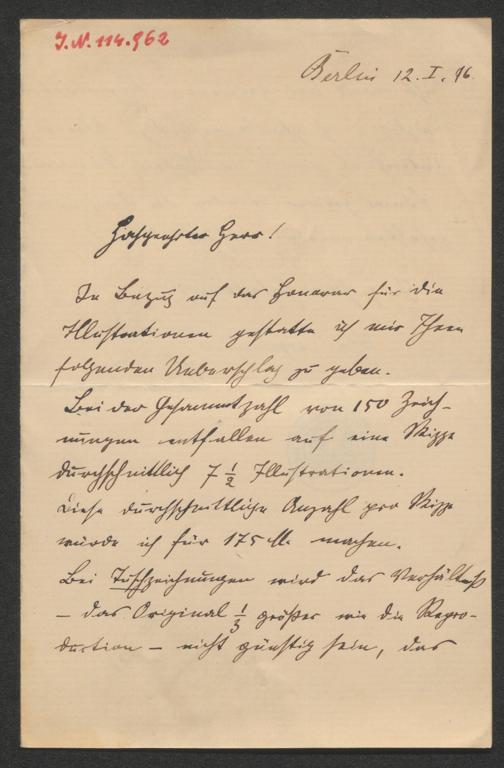 J.N. 114.962
Berlin 12. I. 96.
Hochgeehrter Herr!
In Bezug auf das Honorar für die
Illustrationen gestatte ich mir Ihnen
folgenden Ueberschlag zu geben.
Bei der Gesammtzahl von 150 Zeich-
nungen entfallen auf eine Skizze
durchschnittlich 7 1/2 Illustrationen.
Diese durchschnittliche Anzahl pro Skizze
würde ich für 175 M. machen.
Bei Tuschzeichnungen wird das Verhältniß
– das Original 1/3 größer wie die Repro-
duction – nicht günstig sein, das